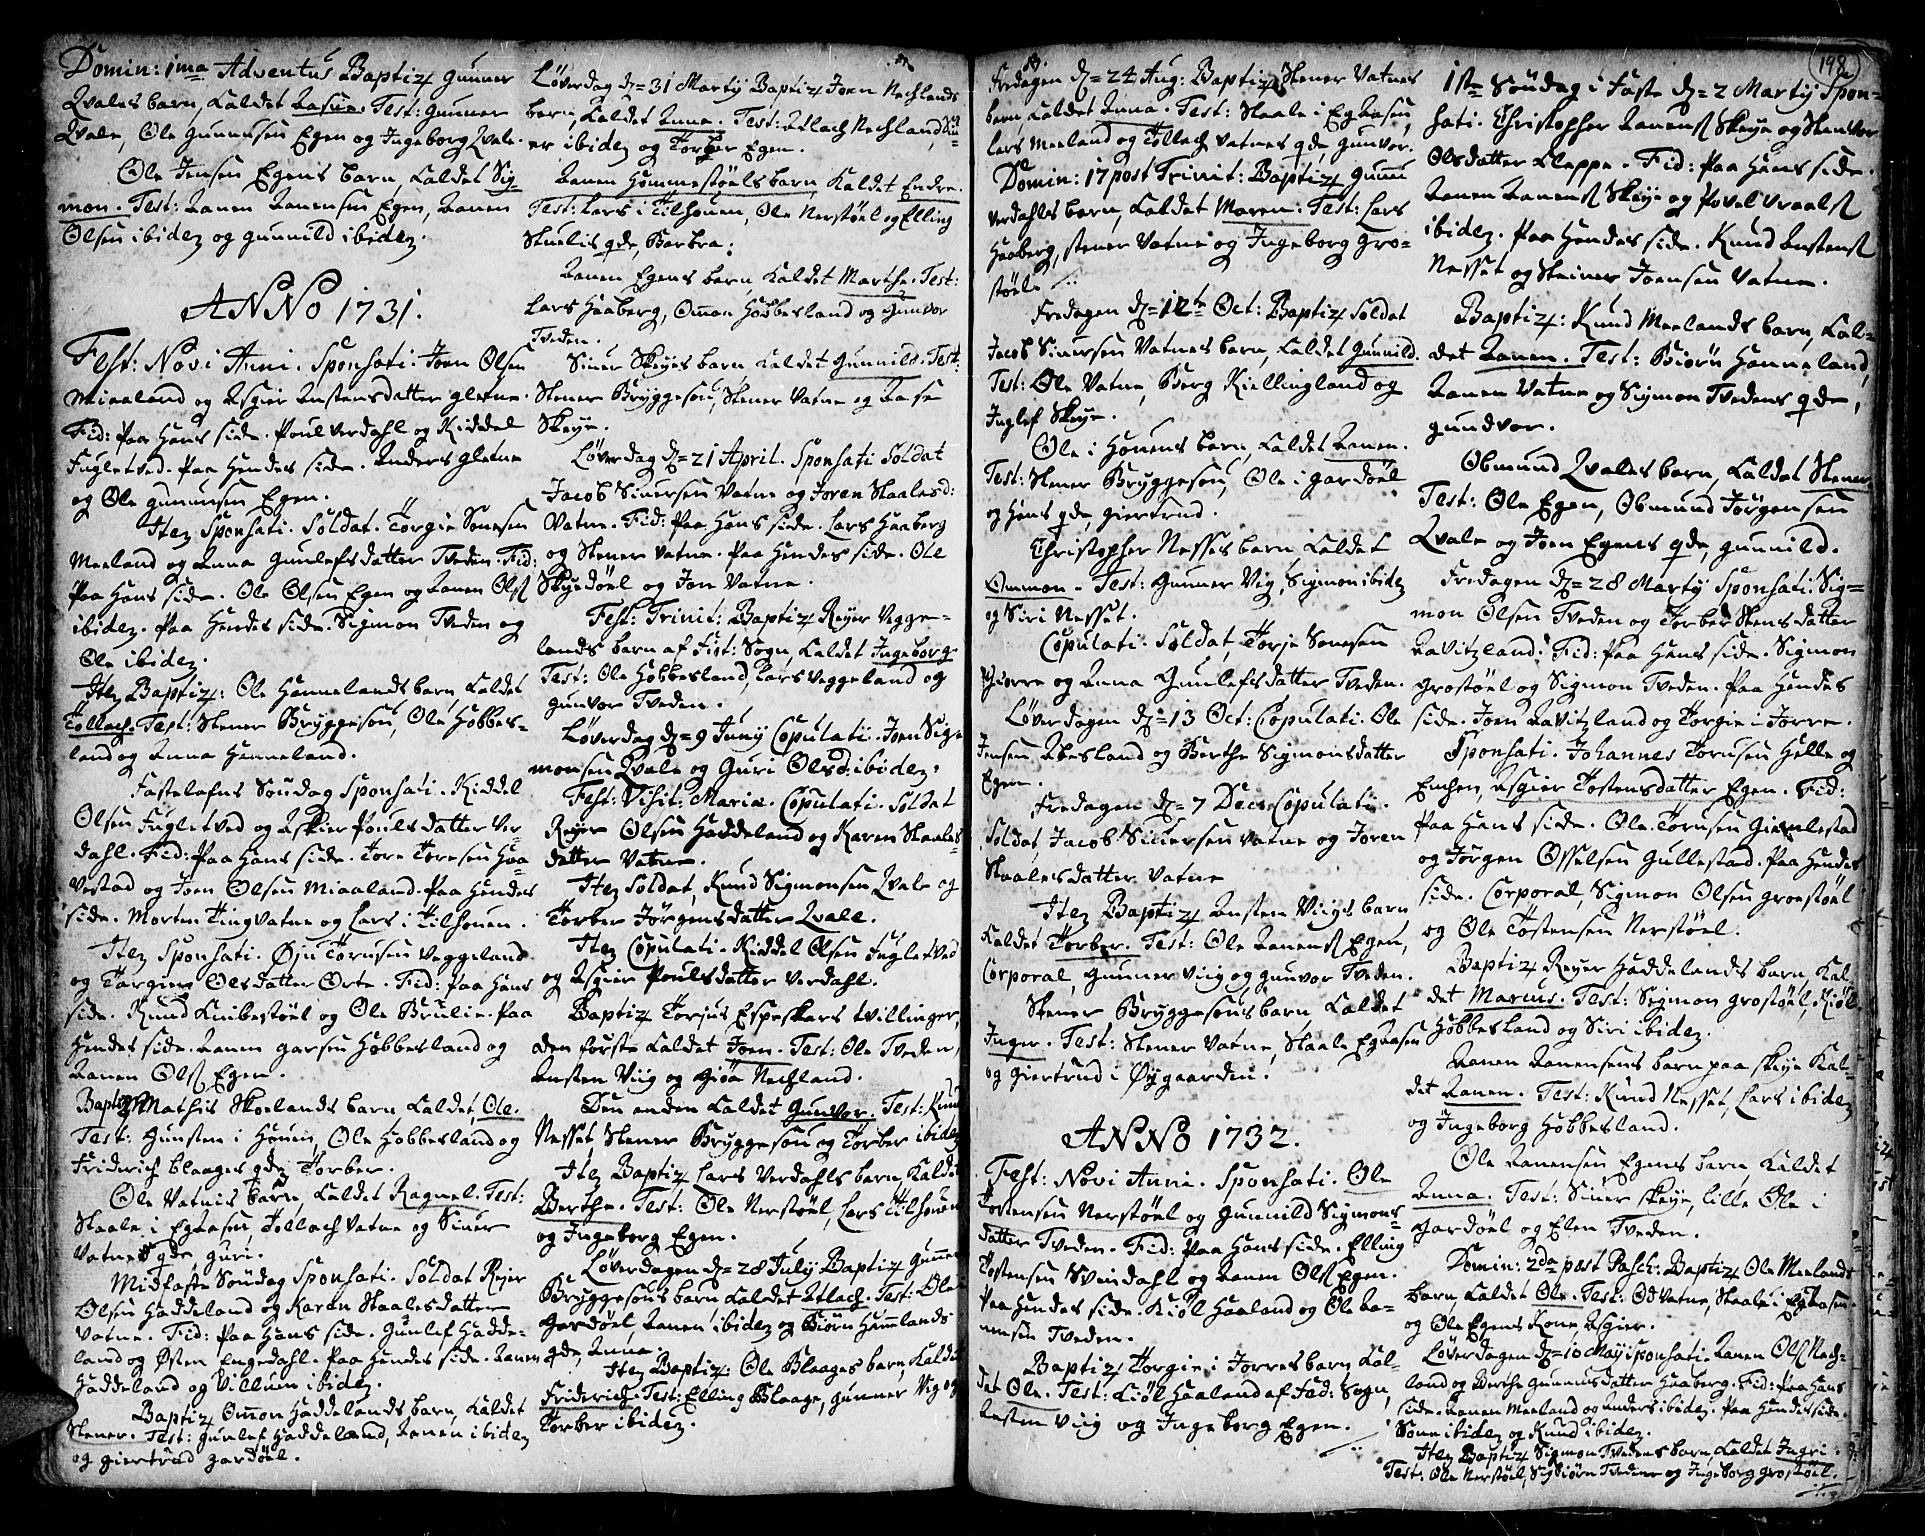 Domin: 1ma Adventus Baptiz Gunner
Qvales barn, Kaldet Aasue. Test: Gunner
Qvale, Ole Gunnusen Egen og Ingeborg Qvale.
Ole Jensen Egens barn, Kaldet Sig-
mon. Test: Aanen Aanensen Egen, Aanen
Olsen ibidez og gunnild ibidez.
ANNO 1731.
Fest: Novi Anni. Sponsati. Joen Olsen
Miaaland og Asgier Anstensdatter gletne.
Fid: Paa Hans side. Poul Verdahl og Kiddel
Fugletved. Paa Hendes side. Anders gletne
og Ole gunnusen Egen.
Itez Sponsati. Soldat. Torgie Sonesen
Meeland og Anna Gunlefsdatter Tveden. Fid:
Paa Hans side. Ole Olsen Egen og Aanen Olsß
ibidez. Paa Hendes side. Sigmon Tveden og
Ole ibidez.
Itez Baptiz: Ole Hannelands barn Kaldet
Tollach. Test: Stener Bryggesou, Ole Hobbes-
land og Anna Henneland.
Fastelafns Søndag Sponsati. Kiddel
Olsen Fugletved og Askier Poulsdatter Ver-
dahl. Fid: Paa Hans side. Tore Toresen Haa
vestad og Joen Olsen Miaaland. Paa Hendes
side. Morten Tingvatne og Lars i Tilhouen.
Itez Sponsati. Øju Torusen Veggeland
og Torgien Olsdatter Orte. Fid: Paa Hans
side. Knud Knibestøel og Ole Brulie. Paa
Hendes side. Aanen garsen Hobbesland og
Aanen Olsß Egen.
Baptiz Mathis Skoelands barn Kaldet, Ole.
Test: Gunsten i Houen, Ole Hobbesland og
Friderich Blaages qde Torber.
Ole Vatnis barn, Kaldet Ragnel. Test:
Staale i Egaasen, Tollach Vatne og Siner
Vatnes qde guri.
Midfaste Søndag Sponsati. Soldat Rejer
Olsen Haddeland og Karen Staalesdatter
Vatne. Fid: Paa Hans side. Gunlef Hadde-
land og Østen Engedahl. Paa Hendes side. Aanen
Haddeland og Villum ibidez.
Baptiz Omon Haddelands barn, Kaldet
Stener. Test: Gunlef Haddeland, Aanen ibidez
og giertrud gardøel.
Løverdag dz= 31 Martij Baptiz Joen Nechlands
barn, Kaldet Anna. Test: Atlach Nechland,
er ibidez og Torber Egen.
Aanen Hommestøels barn Kaldet Endre.
Test: Lars i Tilhouen, Ole Nerstøel og Elling
Stuelis qde, Barbra.
Aanen Egens barn Kaldet Marthe. Test:
Lars Haaberg, Omon Hobbesland og Gunvor
Tveden.
Siner Skeyes barn Kaldet Gunnild. Test:
Stener Bryggesou, Stener Vatne og Aase
Skeye.
Løverdag dz= 21 April. Sponsati Soldat
Jacob Sinersen Vatne og Joren Staalesd:
Vatne. Fid: Paa Hans side. Lars Haaberg
og Stener Vatne. Paa Hendes side. Ole
Skyedøel og Jon Vatne.
Fest: Trinit: Baptiz Reyer Vegge-
lands barn af Fist: Sogn, Kaldet Ingeborg
Test: Ole Hobbesland, Lars Veggeland og
gunvor Tveden.
Løverdag dz= 9 Junij Copulati. Joen Sig-
monsen Qvale og Guri Olsd: ibidez.
Fest: Visit: Mariæ. Copulati. Soldat
Reyer Olsen Haddeland og Karen Staales-
datter Vatne.
Itez Soldat, Knud Sigmonsen Qvale og
Torber Jørgensdatter Qvale.
Itez Copulati. Kiddel Olsen Fugletved
og Asgier Poulsdatter Verdahl.
Baptiz Torjus Espeskars tvillinger,
den første Kaldet Joen. Test: Ole Tveden,
Ansten Viig og Gioa Nechland.
Den anden Kaldet Gunvor. Test: Knud
Nesset, Stener Bryggesou og Torber ibidez
Itez Baptiz Lars Verdahls barn, Kaldet
Berthe. Test: Ole Nerstøel, Lars Tilhouen
og Ingeborg Egen.
Løverdagen dz= 28 July Baptiz Gunner
Bryggesous barn Kaldet Atlach. Test: Ole i
Gardøel, Aanen ibidez og Biørn Hannelands
qde, Anna.
Itez Baptiz: Ole Blaages barn, Kaldet
Friderich. Test: Elling Blaage, Gunner Vig og
Torber ibidez.
Fredagen dz= 24 Aug: Baptiz Stener Vatnes
barn Kaldet Anna. Test: Staale i Egaasen,
Lars Meeland og Tollach Vatnes qde, Gunvor.
Domin: 17 post Trinit: Baptiz Gunn
Verdahls barn, Kaldet Maren. Test: Lars
Haaberg, Stener Vatne og Ingeborg Gro-
støel.
Fredagen dz= 12te Oct: Baptiz Soldat
Jacob Sinersen Vatnes barn, Kaldet Gunnild.
Test: Ole Vatne, Borg Kiellingland og
Inglef Skeye.
Ole i Houens barn, Kaldet Aanen.
Test: Stener Bryggesou, Ole i gardøel
og Hans qde, giertrud.
Christopher Nesses barn Kaldet
Ommon. Test: Gunner Vig, Sigmon ibidez
og Siri Nesset.
Copulati. Soldat, Torje Sonesen
Giorre og Anna Gunlefsdatter Tveden.
Løverdagen dz= 13 Oct: Copulati. Ole
Jensen Abesland og Berthe Sigmonsdatter
Egen.
Fredagen dz= 7 Dec: Copulati.
Soldat Jacob Sinersen Vatne og Joren
Staalesdatter Vatne
Itez Baptiz Ansten Viigs barn
Kaldet Torber. Test: Ole Aanensß Egen,
Corporal, Gunner Viig og gunvor Tveden.
Stener Bryggesous barn Kaldet
Inger. Test: Stener Vatne, Staale Egaasen
og giertrud i Øygaarden.
ANNO 1732.
Fest: Novi Anni. Sponsati. Ole
Tostensen Nerstøel og Gunnild Sigmons-
datter Tveden. Fid: Paa Hans side. Elling
Tostensen Svindahl og Aanen Olsß Egen.
Paa Hendes side. Kiøl Haaland og Ole Aa-
nensen Tveden.
Baptiz Torgie i Jorres barn Kal-
det Ole. Test: Kiøl Haaland af Fed: Sogn,
Ansten Viig og Ingeborg Egen.
198
1ste Søndag i Faste dz= 2 Martij Spon-
sati. Christopher Aanensß Skeye og Stenvor
Olsdatter Kleppe. Fid: Paa Hans side.
Aanen Aanensß Skeye og Povel Vraalsß
ibidez. Paa Hendes side. Knud Anstensß
Nesset og Steiner Joensen Vatne.
Baptiz: Knud Meelands barn, Kal-
det Aanen. Test: Biørn Henneland,
Aanen Vatne og Sigmon Tvedens qde,
gundvor.
Obmund Qvales barn, Kaldet Stener
Test: Ole Egen, Obmund Jørgensen
Qvale og Joen Egens qde, gunnild.
Fredagen dz= 28 Martij Sponsati. Sig-
mon Olsen Tveden og Torber Stensdatter
Aavitzland. Fid: Paa Hans side. Sigmon
Grostøel og Sigmon Tveden. Paa Hendes
side. Joen Aavitzland og Torgie i Jorre.
Sponsati. Johannes Torusen Helle og
Enchen, Asgier Tostensdatter Egen. Fid:
Paa Hans side. Ole Torusen Giemlestad
og Jørgen Osselsen Gullestad. Paa Hendes
side. Corporal, Sigmon Olsen groestøel
og Ole Tostensen Nerstøel.
Baptiz Reyer Haddelands barn, Kal-
det Marcus. Test: Sigmon grostøel, Kiøl
Hobbesland og Siri ibidez.
Aanen Aanensens barn paa Skeye Kal-
det Aanen. Test: Knud Nesset, Lars ibidez
og Ingeborg Hobbesland.
Ole Aanensen Egens barn Kaldet
Anna. Test: Siner Skeye, lille Ole i
gardøel og Elen Tveden.
Domin: 2da post Pasch: Baptiz Ole Meelands
barn, Kaldet Ole. Test: Od Vatne, Staale i Egaasen.
og Ole Egens Kone Asgier.
Løverdagen dz= 10 Maij sponsati. Aanen Olsß Nech-
land og Berthe Gunnusdatter Haaberg. Fid: Paa Hans
side. Aanen Meeland og Anders ibidez. Paa Hendes side.
Sonn ibidez og Knud ibidez.
Itez Baptiz Sigmon Tvedens barn, Kaldet Ingri.
Test: Ole Nerstøel, Sigbiørn Tvedene og Ingeborg grostøel.